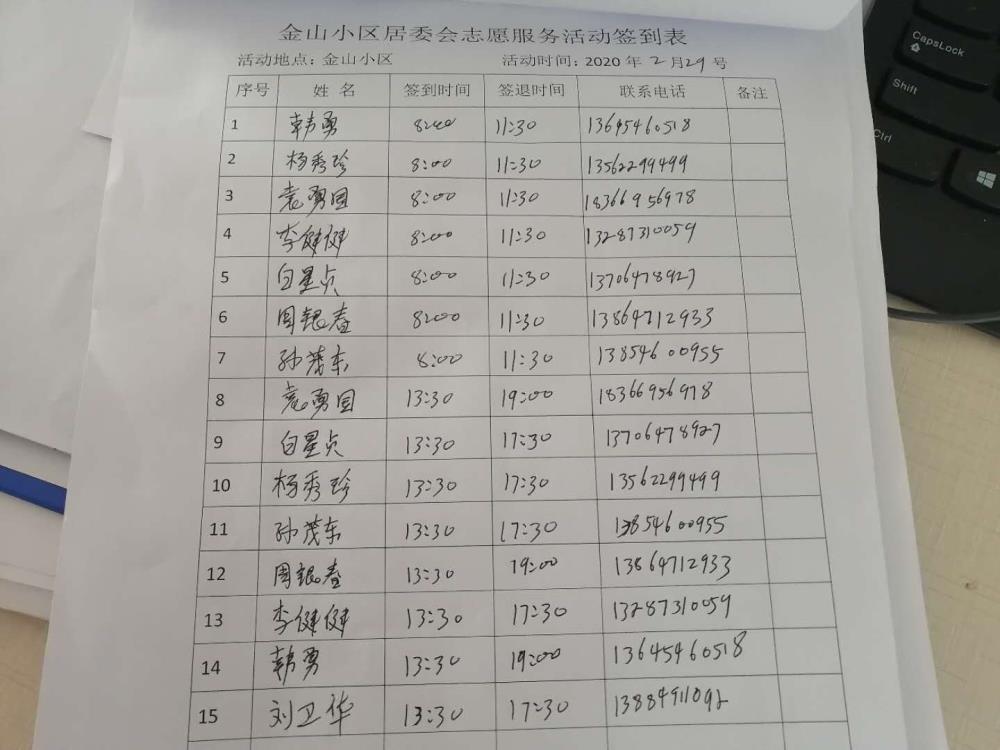 金山小区居委会志愿服务活动签到表
活动地点：金山小区 活动时间：2020 年 2 月 29 号
序号 姓 名 签到时间 签退时间 联系电话 备注
1 韩勇 8:00 11:30 13645460518
2 杨秀珍 8:00 11:30 13562299499
3 袁勇国 8:00 11:30 18366956978
4 李健健 8:00 11:30 13287310059
5 白星贞 8:00 11:30 13706478927
6 周银春 8:00 11:30 13864712933
7 孙茂东 8:00 11:30 13854600955
8 袁勇国 13:30 19:00 18366956978
9 白星贞 13:30 17:30 13706478927
10 杨秀珍 13:30 17:30 13562299499
11 孙茂东 13:30 17:30 13854600955
12 周银春 13:30 19:00 13864712933
13 李健健 13:30 17:30 13287310059
14 韩勇 13:30 19:00 13645460518
15 刘卫华 13:30 17:30 13884911092
CapsLock
Shift
Ctrl